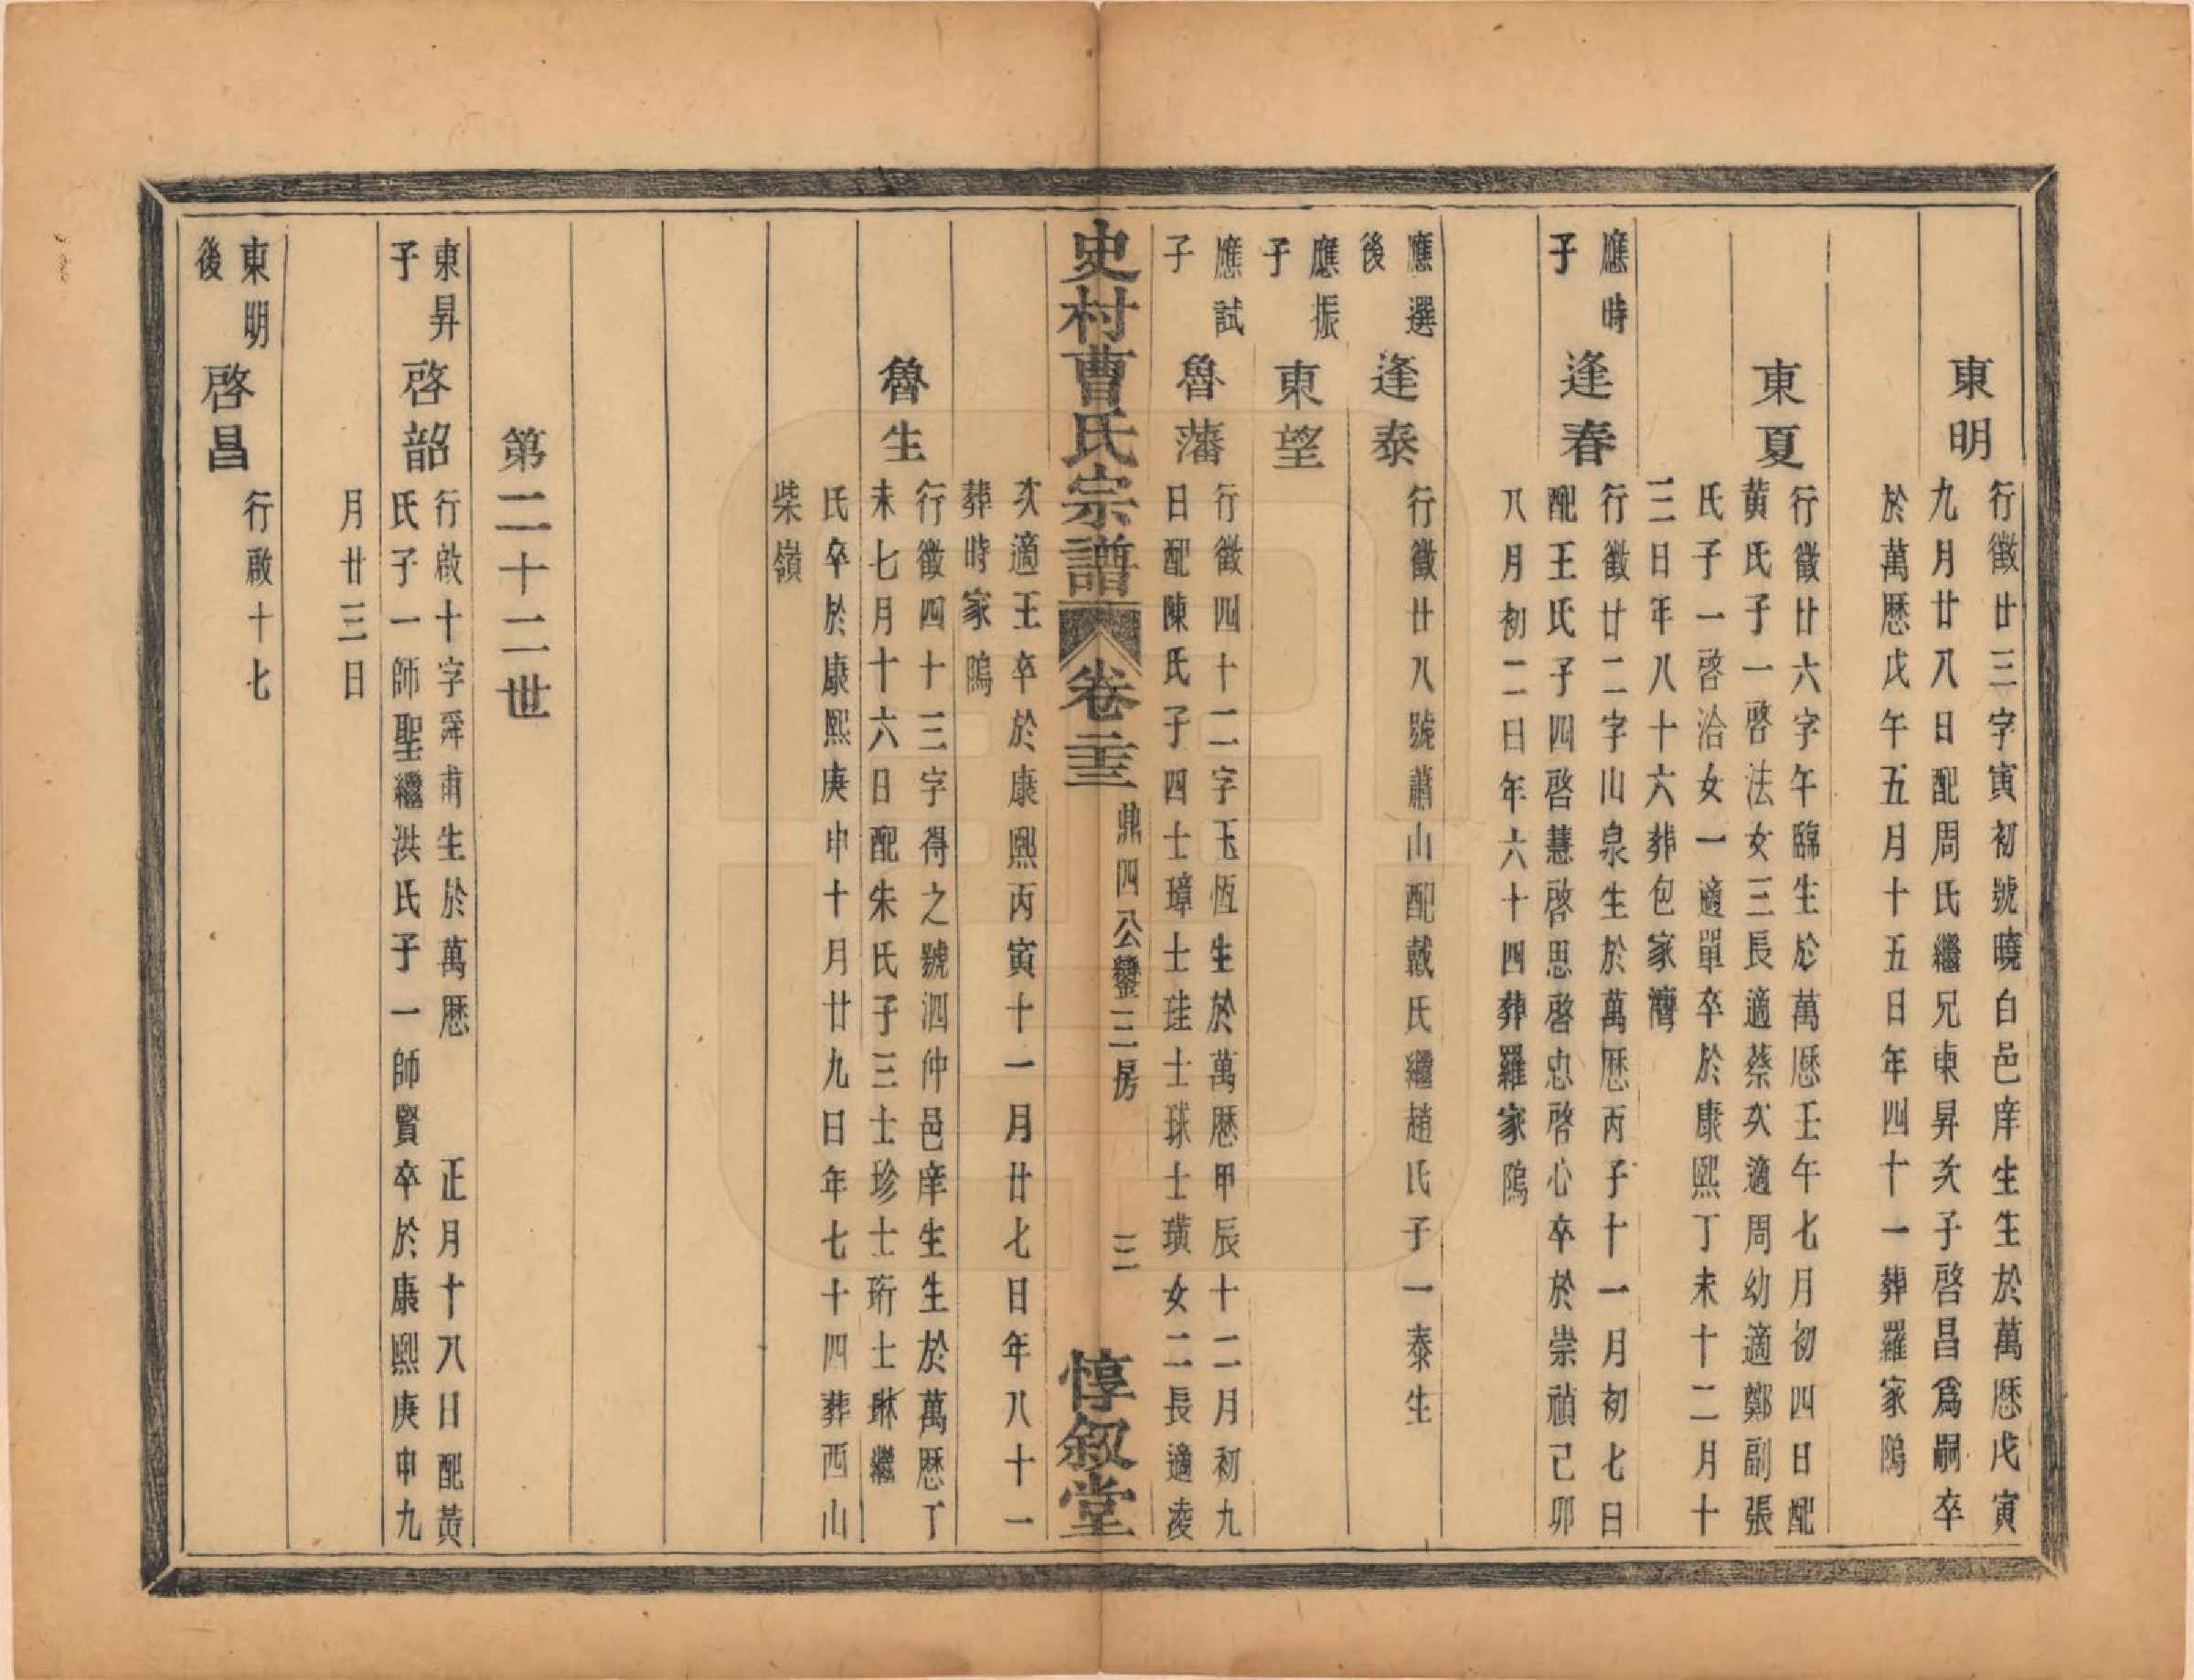 東明
行徵廿三字寅初號曉白邑庠生生於萬厯戊寅
九月廿八日配周氏繼兄東昇次子啓昌爲嗣卒
於萬厯戊午五月十五日年四十一葬羅家隖
東夏
行徵廿六字午臨生於萬厯壬午七月初四日配
黃氏子一啓法女三長適蔡次適周幼適鄭副張
氏子一啓洽女一適單卒於康熙丁未十二月十
三日年八十六葬包家灣
應時
子
逢春
行徵廿二字山泉生於萬厯丙子十一月初七日
配王氏子四啓慧啓思啓忠啓心卒於崇禎己卯
八月初二日年六十四葬羅家隖
應選
後
逢泰
行徵廿八號蕭山配戴氏繼趙氏子一泰生
應振
子
東望
應試
子
魯藩
行徵四十二字玉恆生於萬厯甲辰十二月初九
日配陳氏子四士璋士珪士球士璜女二長適凌
史村曹氏宗譜
卷二十三
鼎四公鑾三房
三
惇叙堂
次適王卒於康熙丙寅十一月廿七日年八十一
葬時家隖
魯生
行徵四十三字得之號泗仲邑庠生生於萬厯丁
未七月十六日配朱氏子三士珍士珩士琳繼
氏卒於康熙庚申十月廿九日年七十四葬西山
柴嶺
第二十二世
東昇
子
啓韶
行啟十字舜甫生於萬厯 正月十八日配黃
氏子一師聖繼洪氏子一師賢卒於康熙庚申九
月廿三日
東明
後
啓昌
行啟十七